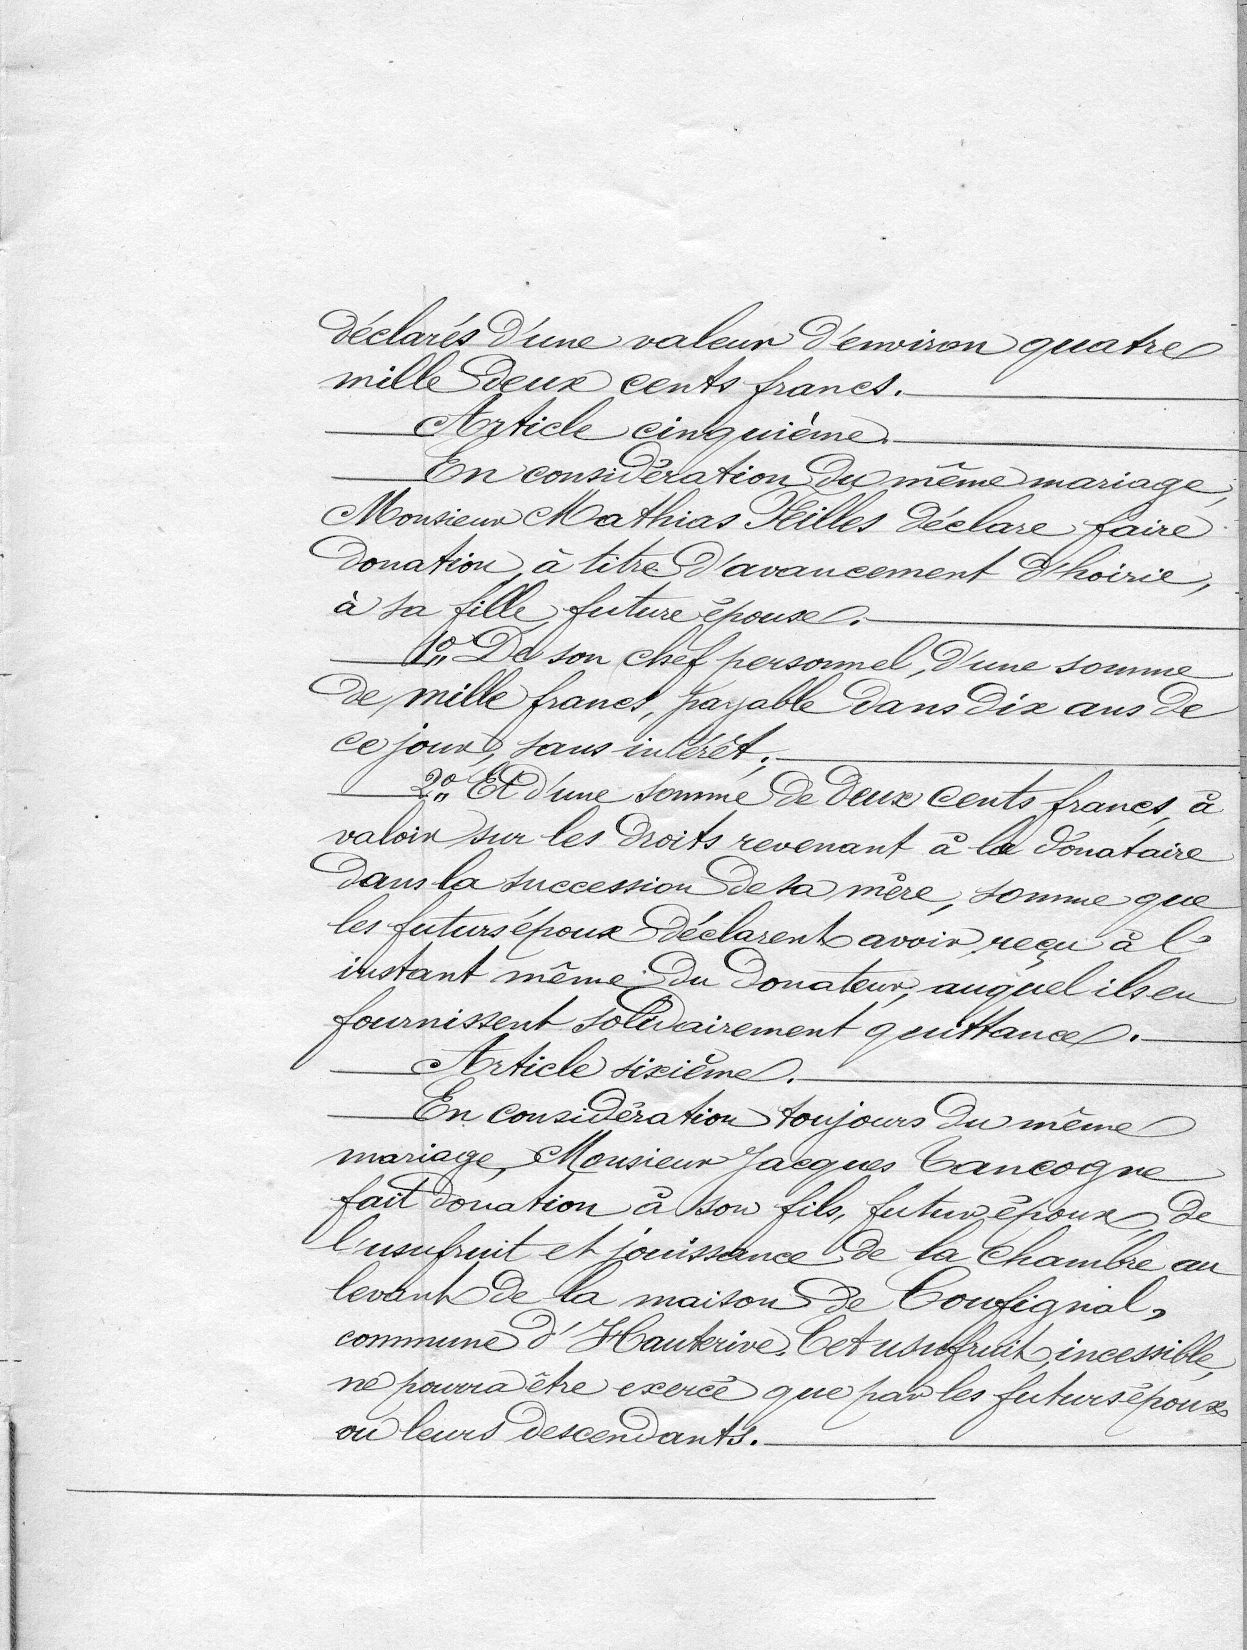 déclarés d'une valeur d'environ quatre
mille deux cents francs.
Article cinquième.
En considération du même mariage,
Monsieur Mathias Filles déclare faire
donation, à titre d'avancement d'hoirie,
à sa fille, future épouse.
1o,, De son chef personnel, d'une somme
de mille francs, payable dans dix ans de
ce jour, sans intérêt;
2o,, Et d'une somme de deux cents francs, à
valoir sur les droits revenant à la donataire
dans la succession de sa mère, somme que
les futurs époux déclarent avoir reçu à l'
instant même du donateur, auquel ils en
fournissent solidairement quittance.
Article sixième.
En considération toujours du même
mariage, Monsieur Jacques Cancogne
fait donation à son fils, futur époux, de
l'usufruit et jouissance de la chambre au
levant de la maison de Coufignal,
commune d'Hauterive. Cet usufruit, incessible,
ne pourra être exercé que par les futurs époux
ou leurs descendants.